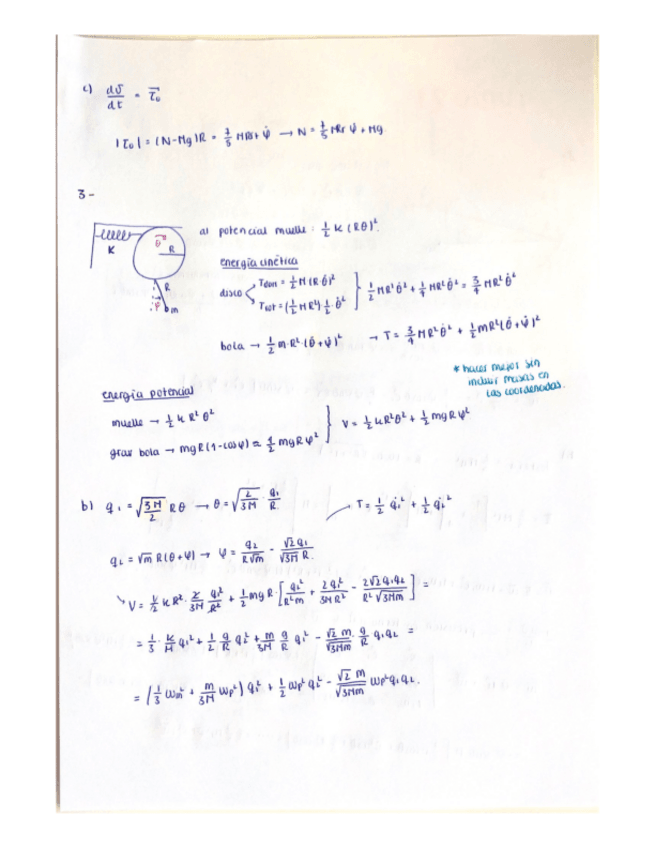 c) dJ/dt = τ₀
|τ₀| = (N-Mg)R = 7/5 MRr ψ̈ → N = 7/5 Mr ψ̈ + Mg.
3-
a) potencial muelle = 1/2 K (Rθ)²
K
θ
R
R
φ
m
energía cinética
disco
Ttran = 1/2 M (R θ̇)²
Trot = (1/2 M R²) 1/2 θ̇²
} 1/2 MR² θ̇² + 1/4 MR² θ̇² = 3/4 MR² θ̇²
bola → 1/2 m R² (θ̇+φ̇)² → T = 3/4 MR² θ̇² + 1/2 mR² (θ̇+φ̇)²
* hacer mejor sin
incluir masas en
las coordenadas.
energía potencial
muelle → 1/2 k R² θ²
grav bola → mgR(1-cosφ) ≈ 1/2 mgRφ²
} V = 1/2 kR²θ² + 1/2 mgRφ²
b) q₁ = √(3M/2) Rθ → θ = √(2/3M) q₁/R. T = 1/2 q̇₁² + 1/2 q̇₂²
q₂ = √m R(θ+φ) → φ = q₂/R√m - √2 q₁/√3M R.
V = 1/2 K R² · 2/3M q₁²/R² + 1/2 mgR · [q₂²/R²m + 2q₁²/3MR² - 2√2 q₁q₂/R²√3Mm] =
= 1/3 · K/M q₁² + 1/2 g/R q₂² + m/3M g/R q₁² - √2 m/√3Mm · g/R q₁q₂ =
= (1/3 ωm² + m/3M ωp²) q₁² + 1/2 ωp² q₂² - √2 m/√3Mm ωp² q₁q₂.